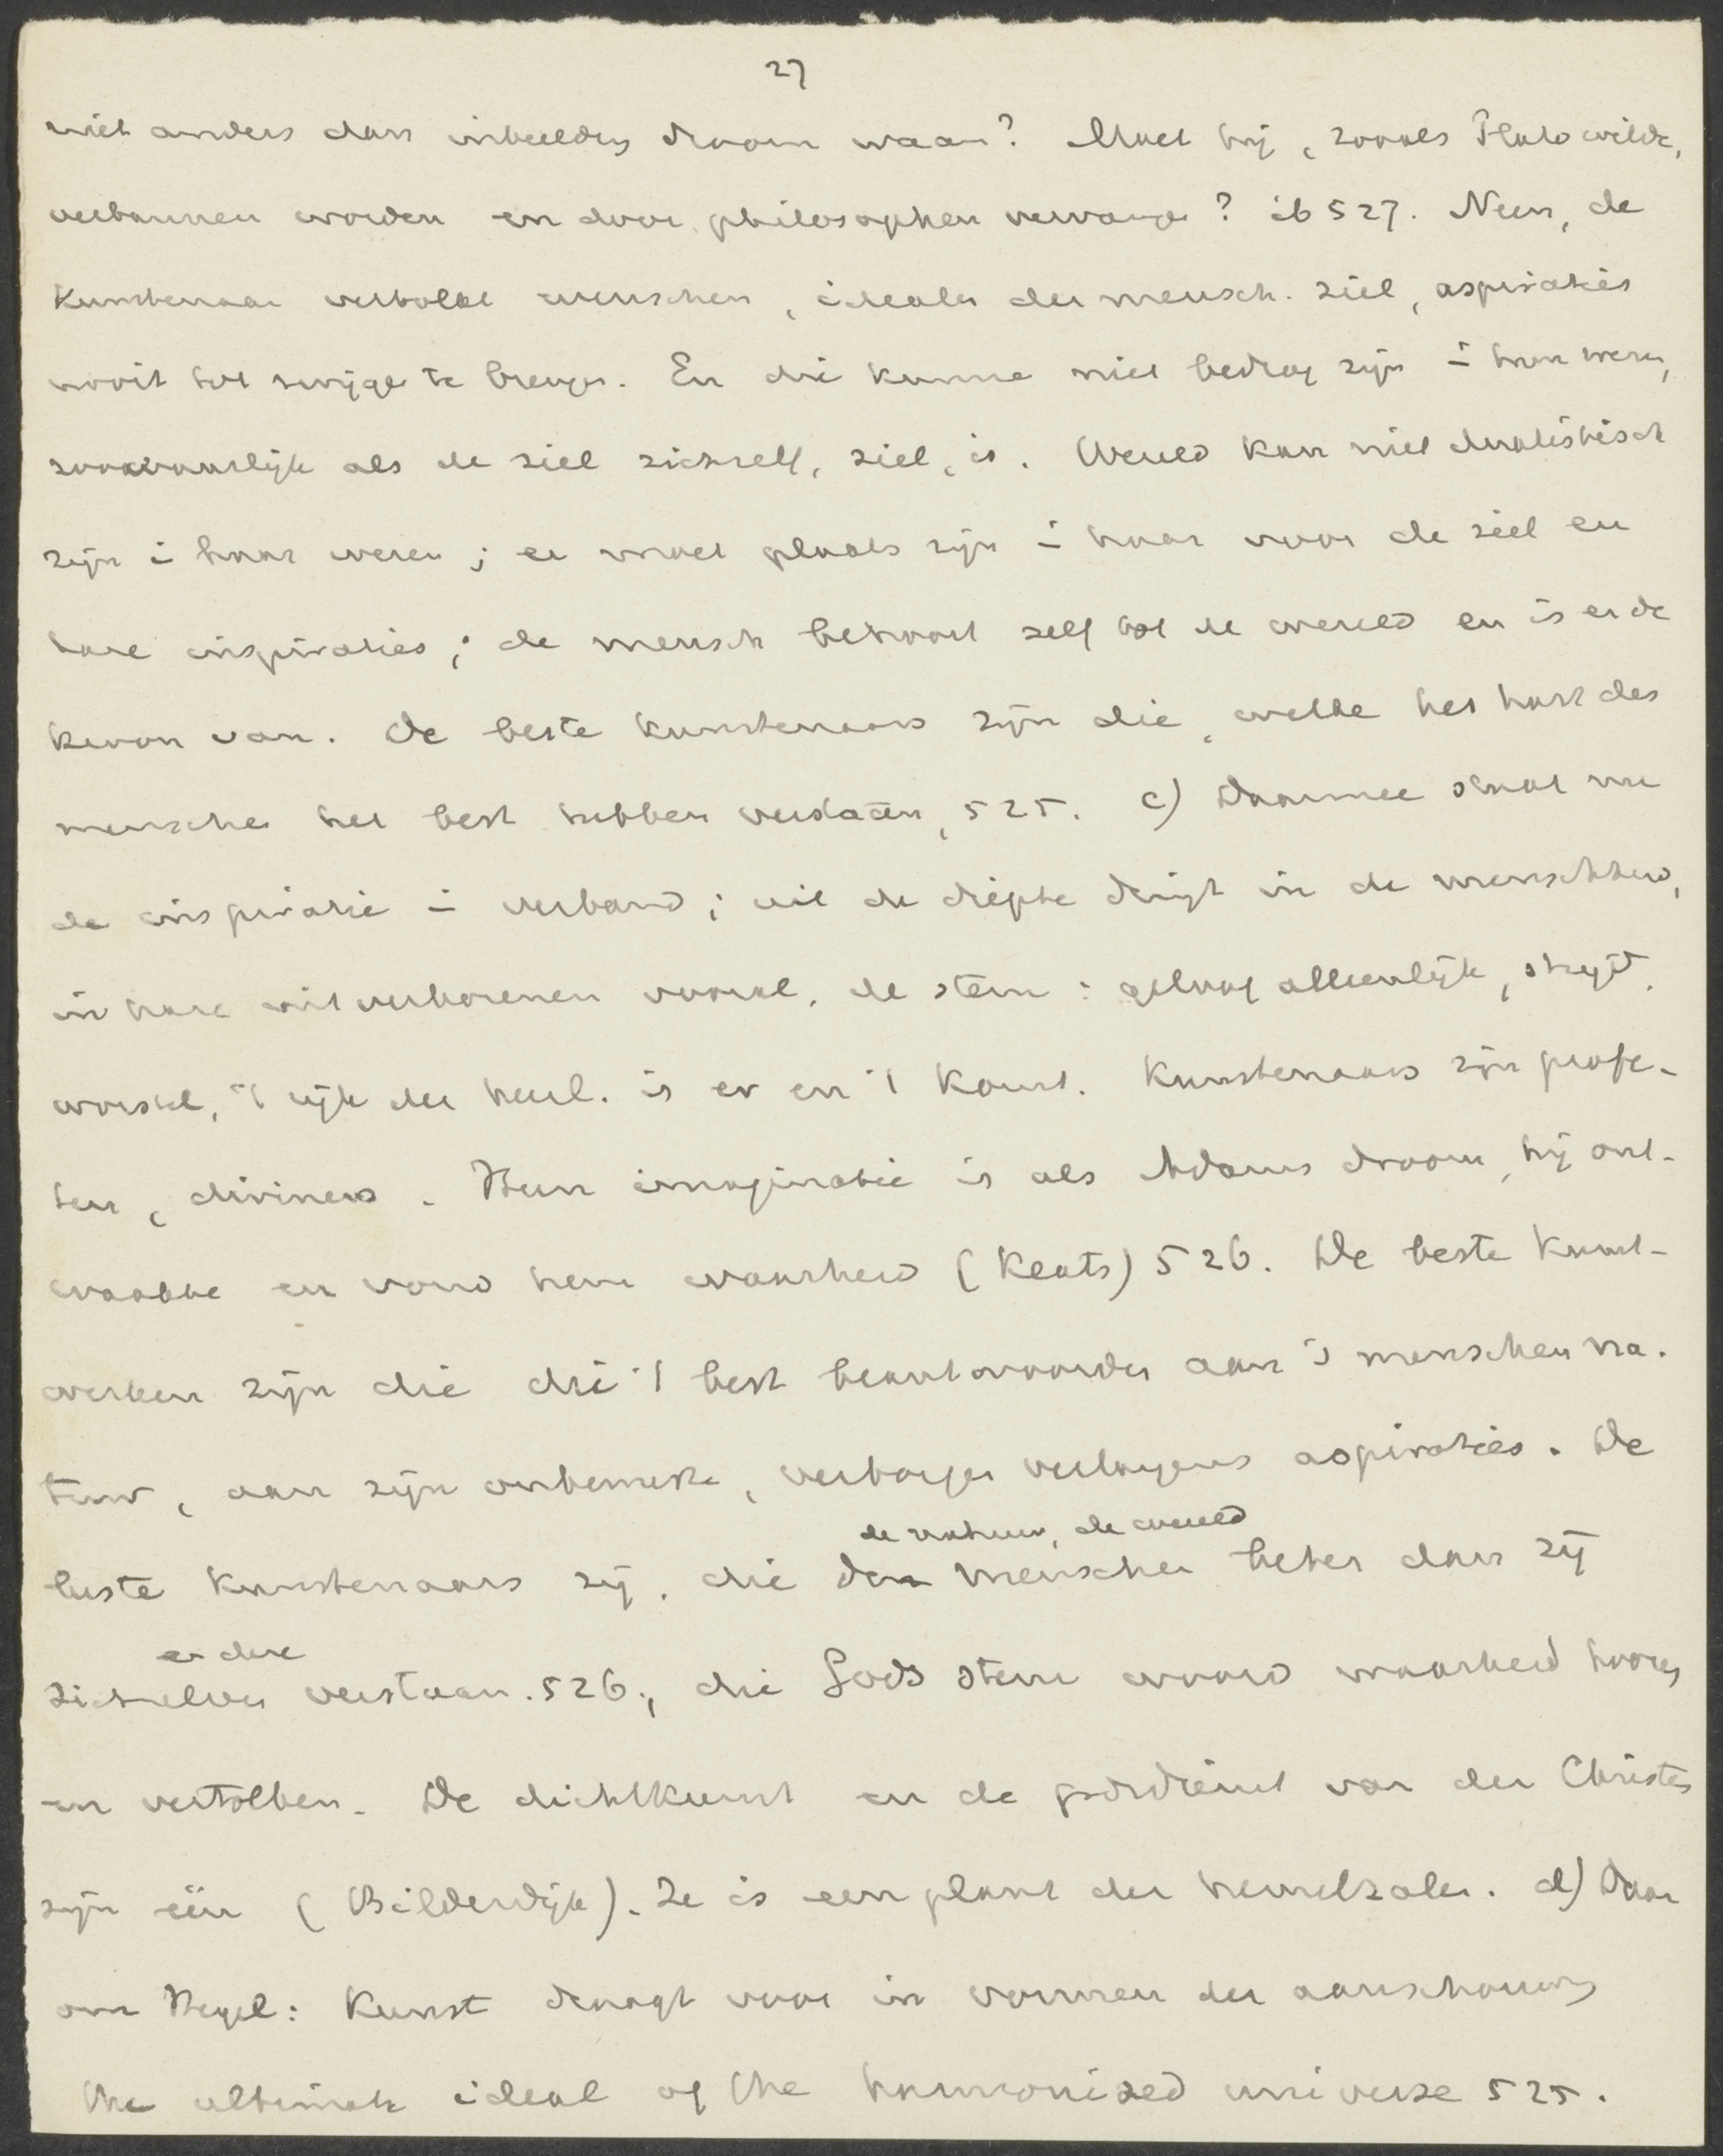 27
niet anders dan inbeelding droom waan? Moet hij, zooals Plato wilde,
verbannen worden en door philosophen vervangen? ib 527. Neen, de
Kunstenaar vertolkt wenschen, idealen der mensch. ziel, aspiraties
nooit tot zwijgen te brengen. En die kunnen niet bedrog zijn i hun wezen,
zoowaarlijk als de ziel zichzelf, ziel, is. Wereld kan niet dualistisch
zijn i haar wezen; er moet plaats zijn i haar voor de ziel en
hare inspiraties; de mensch behoort zelf tot de wereld en is er de
kroon van. De beste kunstenaars zijn die, welke het hart des
menschen het best hebben verstaan, 525. c) Daarmee staat nu
de inspiratie i verband; uit de diepte dringt in de menschheid,
in hare uitverkorenen vooral, de stem: geloof alleenlijk, strijdt,
worstel, 't rijk der heerl. is er en 't komt. Kunstenaars zijn profe-
ten, diviners. Hun imaginatie is als Adams droom, hij ont-
waakte en vond hem waarheid (Keats) 526. De beste Kunst-
werken zijn die die 't best beantwoorden aan 's menschen na-
tuur, aan zijn onbewuste, verborgen verlangens aspiraties. De
de natuur, de wereld
beste kunstenaars zij, die den menschen beter dan zij
en deze
zichzelven verstaan. 526., die Gods stem woord waarheid hooren
en vertolken. De dichtkunst en de godsdienst van den Christen
zijn één (Bilderdijk). Ze is een plant der hemelzalen. d) Daar
om Hegel: Kunst draagt voor in vormen der aanschouwing
the ultimate ideal of the harmonized universe 525.